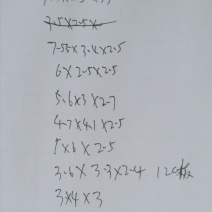 7-55×3-4×2-5
6×2-5×2-5
5-6×3×2-7
4-7×4-1×2-5
5×6×2-5
3-6×3-3×2-4 120板
3×4×3